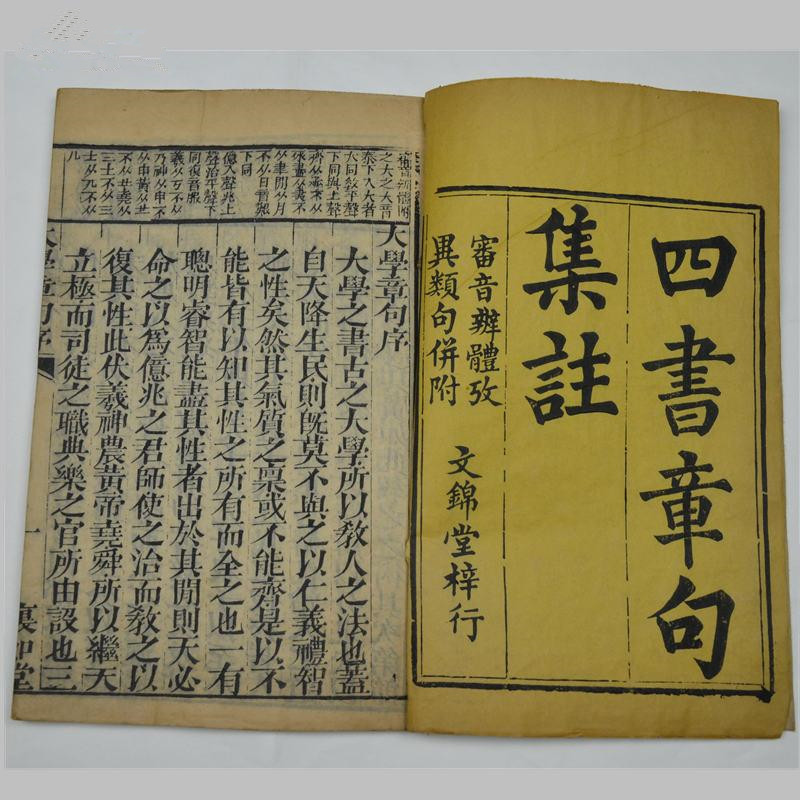 四書章句
集註
審音辨體攷
異類句併附
文錦堂梓行
之大之大音
泰下入大者
大同敎平聲
下同與上聲
下同
億入聲兆上
聲治平聲下
同復音服
大學章句序
大學之書古之大學所以敎人之法也蓋
自天降生民則旣莫不與之以仁義禮智
之性矣然其氣質之稟或不能齊是以不
能皆有以知其性之所有而全之也一有
聰明睿智能盡其性者出於其閒則天必
命之以爲億兆之君師使之治而敎之以
復其性此伏羲神農黃帝堯舜所以繼天
立極而司徒之職典樂之官所由設也三
大學章句序
一